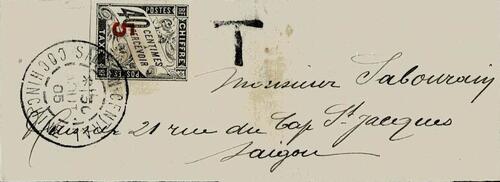 POSTES
CHIFFRE
TAXE
40
CENTIMES
PERCEVOIR
5
T
SAIGON-CENTRAL
COCHINCHINE
05
Monsieur Sabourain
21 rue du Cap St Jacques
Saigon